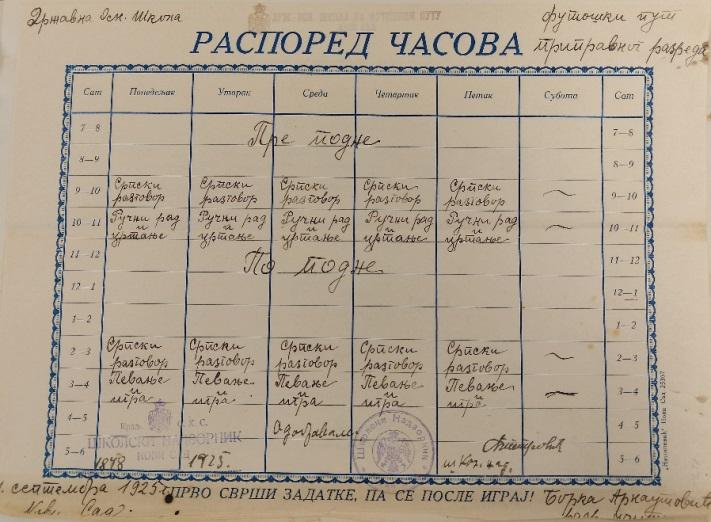 Државна Осн. Школа
футошки пут
РАСПОРЕД ЧАСОВА
приправног разреда
Сат Понедељак Уторак Среда Четвртак Петак Субота Сат
7—8 7—8
Пре подне
8—9 8—9
9—10 Српски разговор Српски разговор Српски разговор Српски разговор Српски разговор 9—10
10—11 Ручни рад и цртање Ручни рад и цртање Ручни рад и цртање Ручни рад и цртање Ручни рад и цртање 10—11
11—12 11—12
По подне
12—1 12—1
1—2 1—2
2—3 Српски разговор Српски разговор Српски разговор Српски разговор Српски разговор 2—3
3—4 Певање и игра Певање и игра Певање и игра Певање и игра Певање и игра 3—4
4—5 4—5
Краљ. С.Х.С.
ШКОЛСКИ НАДЗОРНИК
НОВИ САД
Одобравам
Школски Надзорник
5—6 1925. 5—6
1. септембра 1925 г.
ПРВО СВРШИ ЗАДАТКЕ, ПА СЕ ПОСЛЕ ИГРАЈ!
Борка Арнаутовић
Нови Сад.